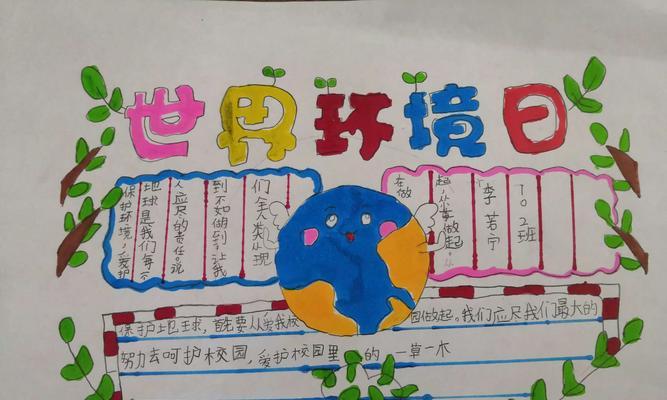 世界环境日
保护环境，爱护
地球是我们每一个
人应尽的责任。说
到不如做到，让我
们全人类从现
在做
起，从我做起。
李若宁
702班
保护地球，首先要从爱我校园做起。我们应尽我们最大的
努力去呵护校园，爱护校园里的一草一木